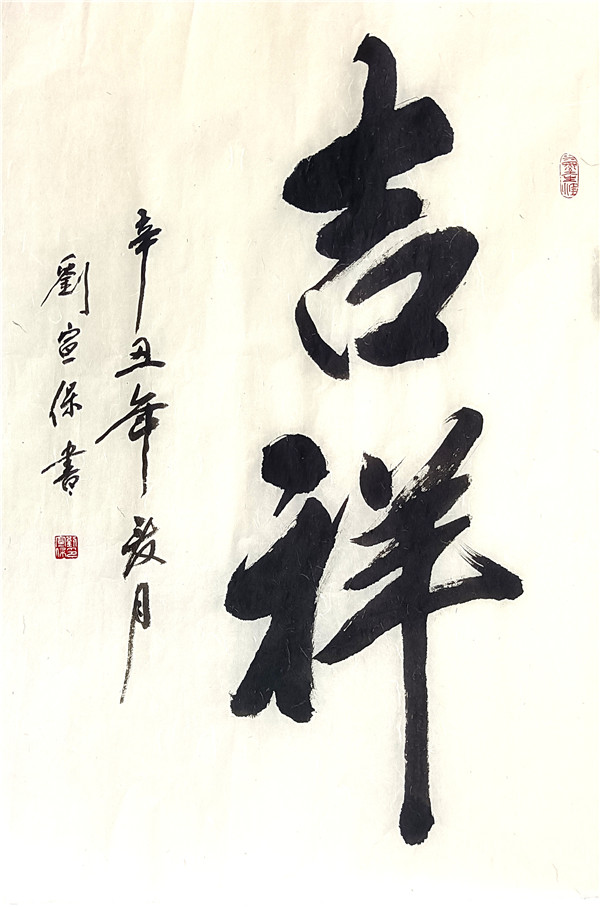 吉祥
辛丑年
月
劉宣保書